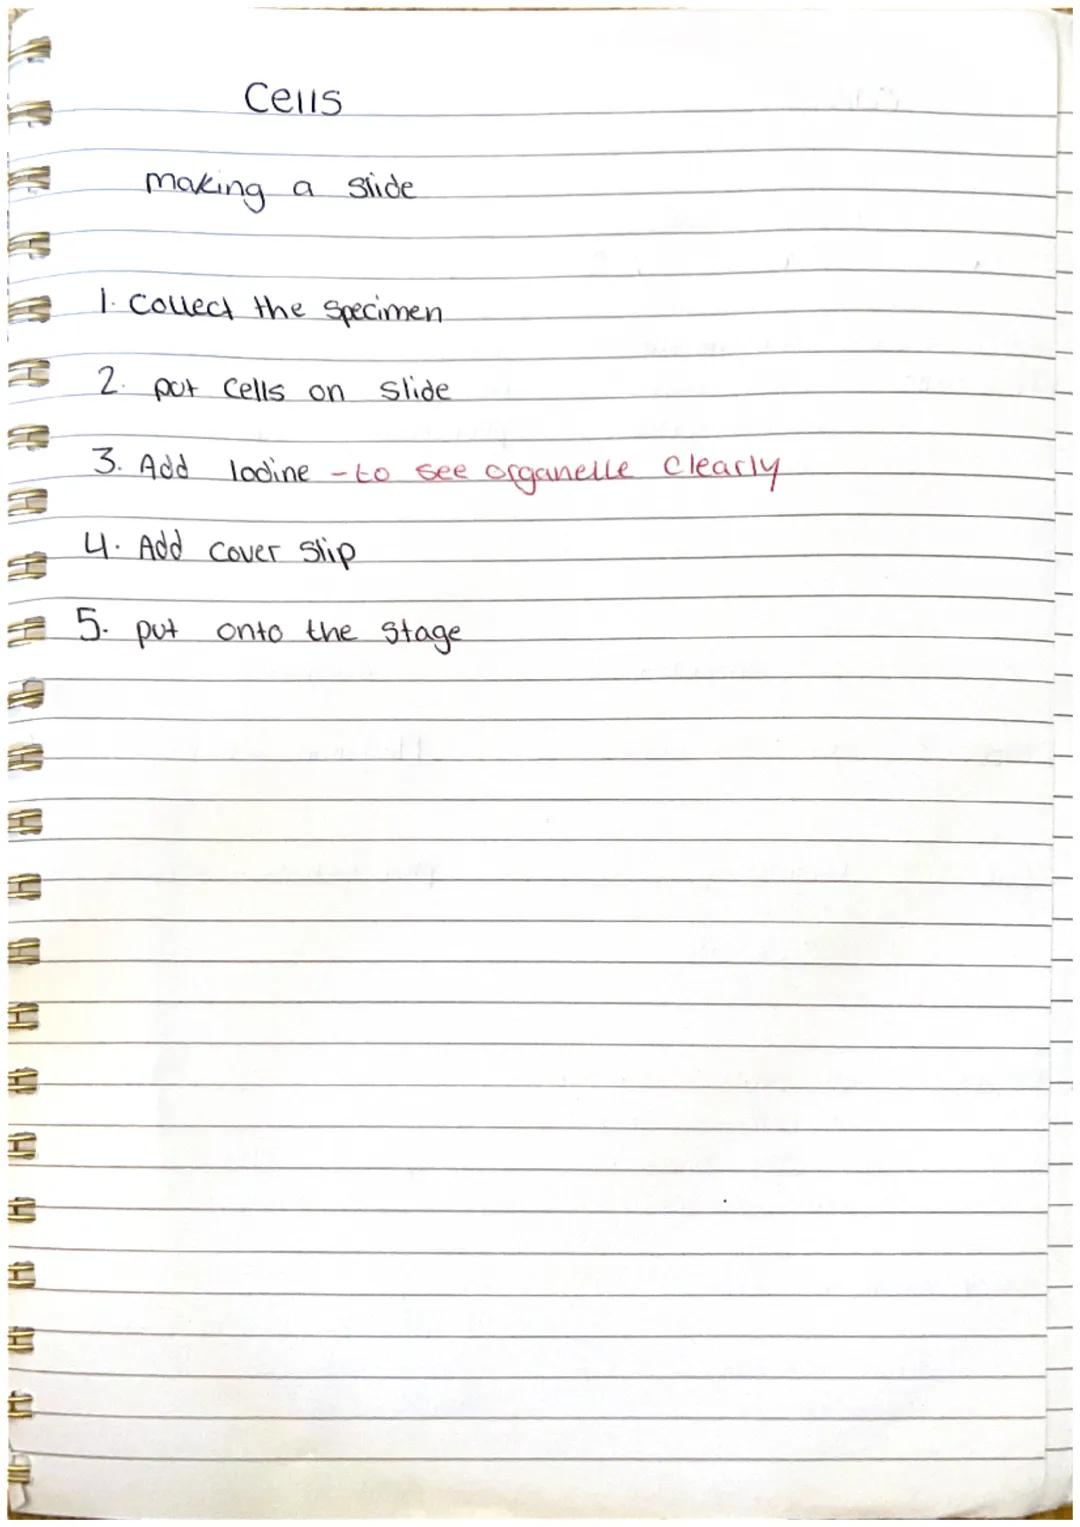 Cells
making a slide
1. Collect the specimen
2. put cells on slide
3. Add Iodine - to see organelle clearly
4. Add cover slip
5. put onto the stage